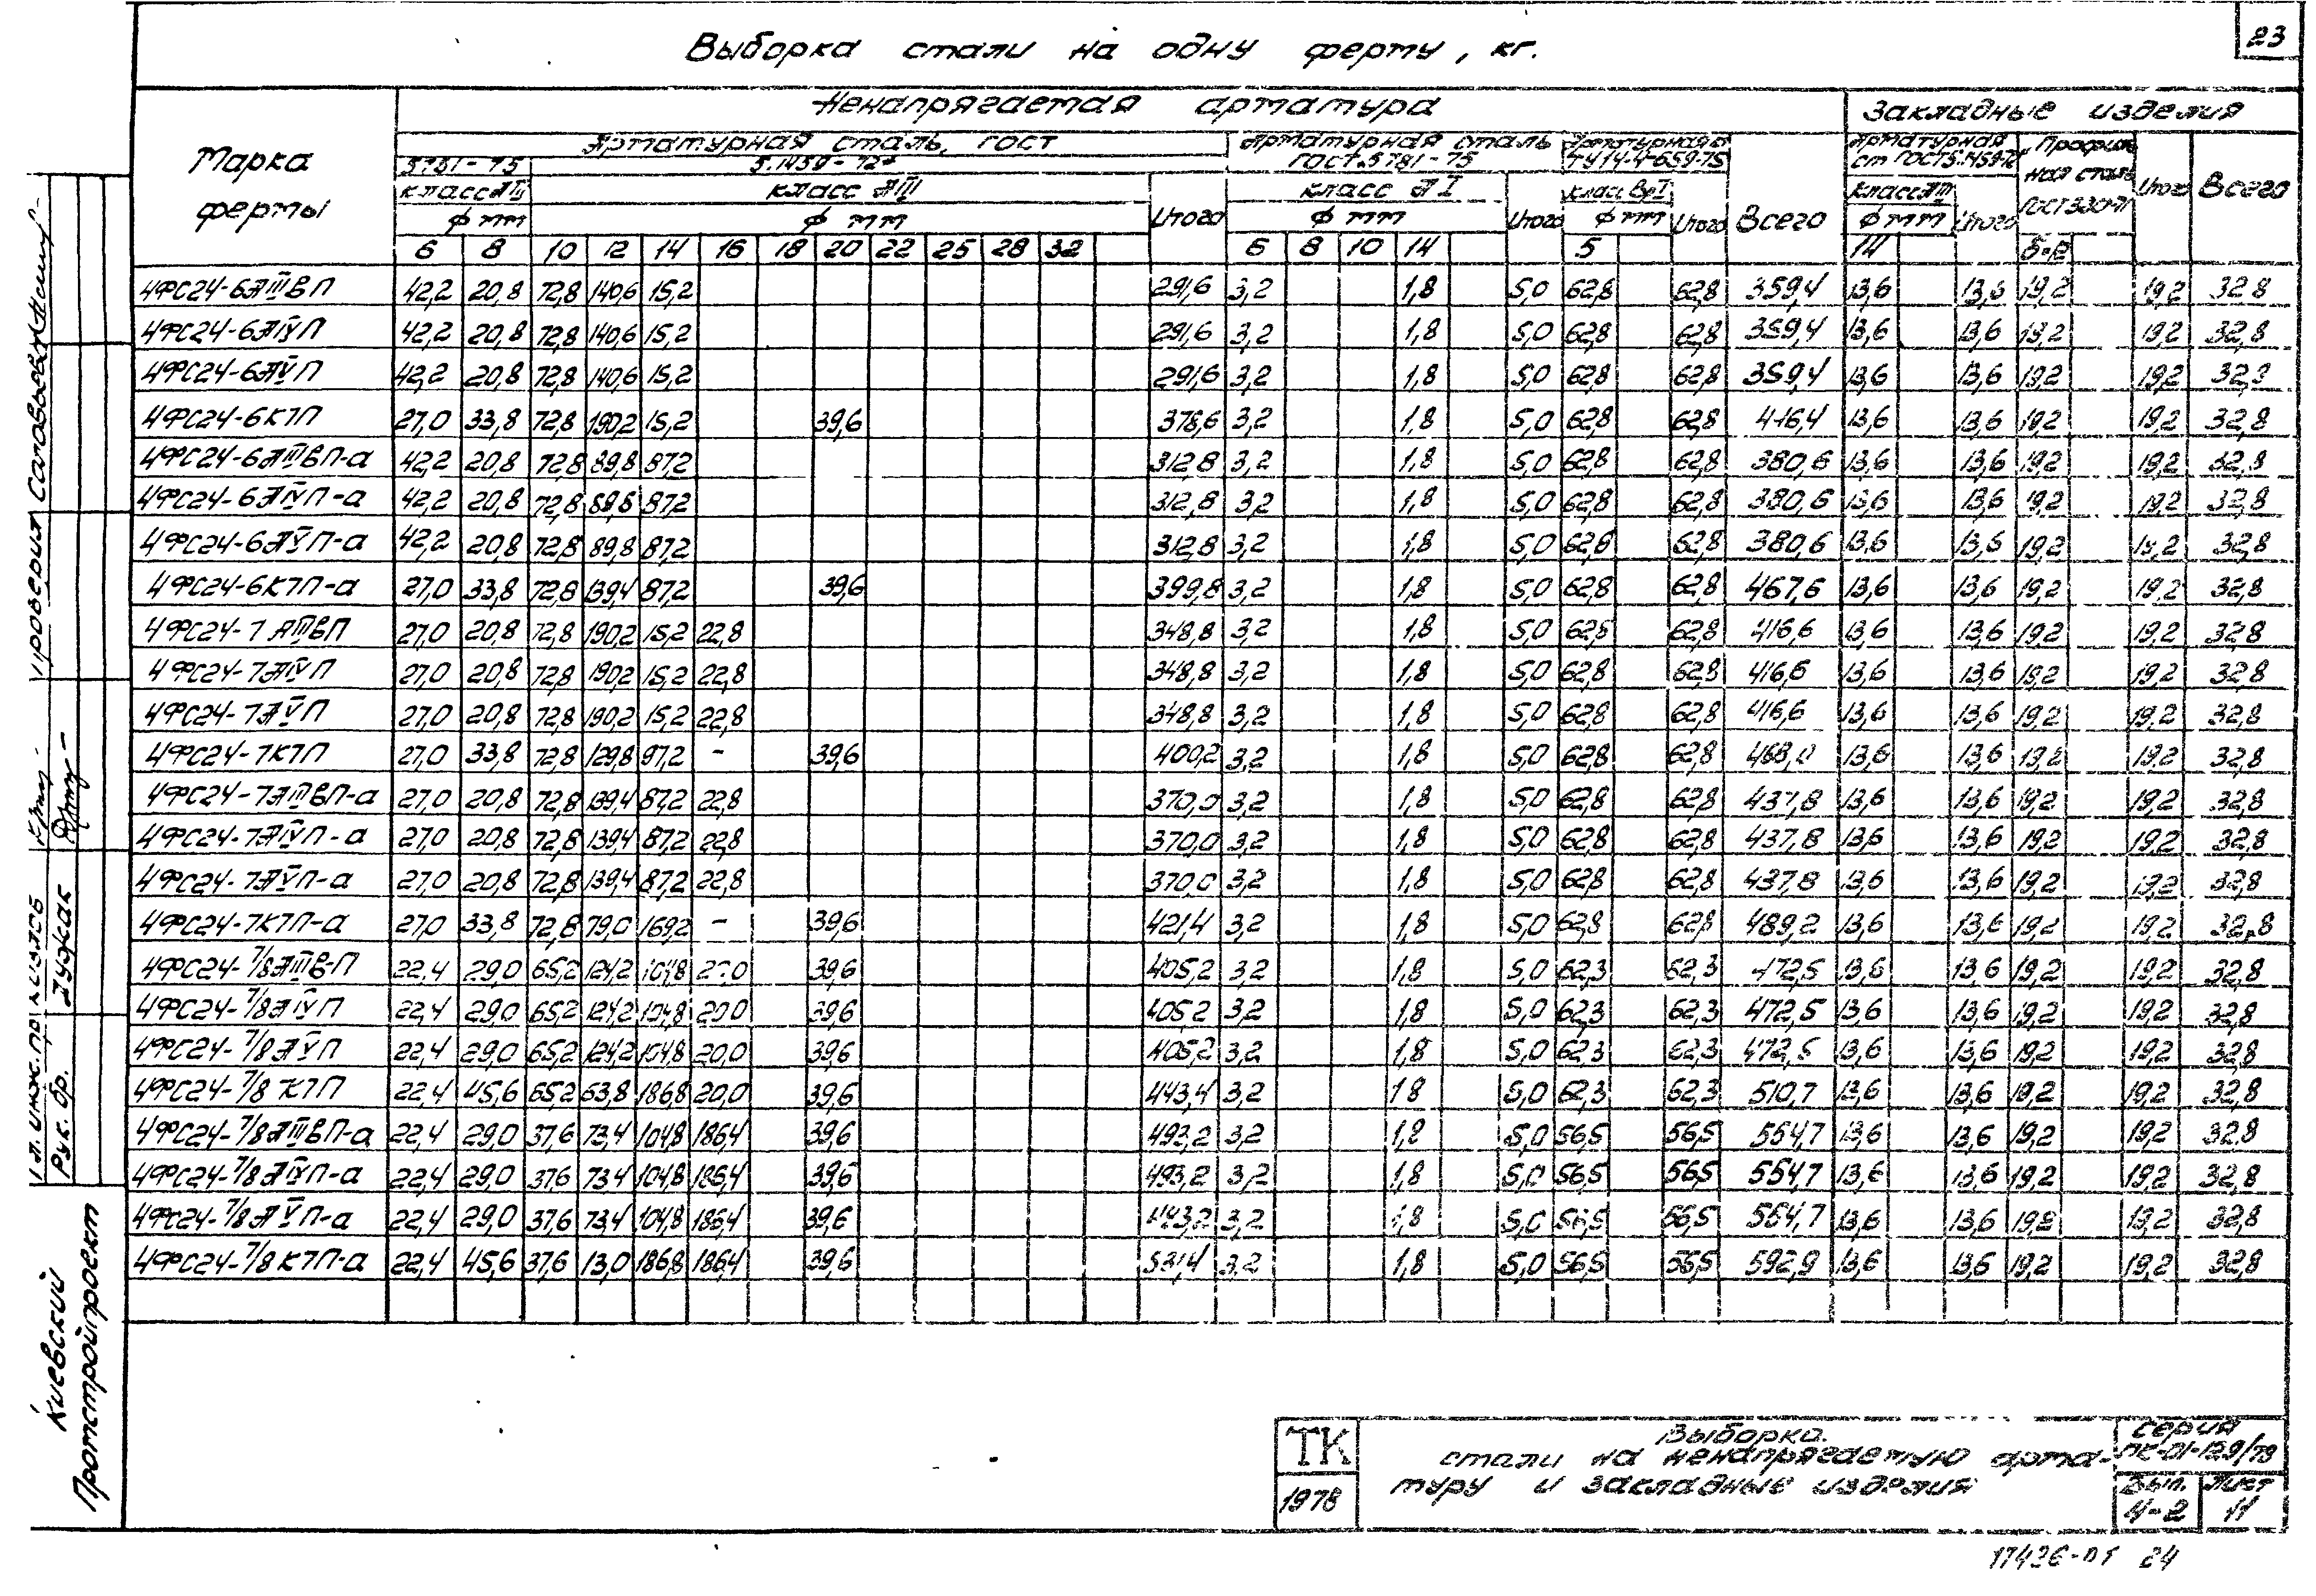 23
Выборка стали на одну ферму, кг.
Марка фермы
Ненапрягаемая арматура
Закладные изделия
Арматурная сталь, ГОСТ
Арматурная сталь ГОСТ 5781-75
ТУ14-4-659-75
Арматурная ст ГОСТ 5.1459-72
Профильная сталь
5781-75
5.1459-72*
класс АIII
класс АIII
класс АI
класс ВрI
класс АIII
Итого
Итого
Итого
Всего
Итого
Итого
Всего
Ф мм
Ф мм
Ф мм
Ф мм
Ф мм
6 8 10 12 14 16 18 20 22 25 28 32 6 8 10 14 5 14
4ФС24-6АIIIвП 42,2 20,8 72,8 140,6 15,2 291,6 3,2 1,8 5,0 62,8 62,8 359,4 13,6 13,6 19,2 19,2 32,8
4ФС24-6АIVП 42,2 20,8 72,8 140,6 15,2 291,6 3,2 1,8 5,0 62,8 62,8 359,4 13,6 13,6 19,2 19,2 32,8
4ФС24-6АVП 42,2 20,8 72,8 140,6 15,2 291,6 3,2 1,8 5,0 62,8 62,8 359,4 13,6 13,6 19,2 19,2 32,8
4ФС24-6К7П 27,0 33,8 72,8 190,2 15,2 39,6 378,6 3,2 1,8 5,0 62,8 62,8 416,4 13,6 13,6 19,2 19,2 32,8
4ФС24-6АIIIвП-а 42,2 20,8 72,8 89,8 87,2 312,8 3,2 1,8 5,0 62,8 62,8 380,6 13,6 13,6 19,2 19,2 32,8
4ФС24-6АIVП-а 42,2 20,8 72,8 89,8 87,2 312,8 3,2 1,8 5,0 62,8 62,8 380,6 13,6 13,6 19,2 19,2 32,8
4ФС24-6АVП-а 42,2 20,8 72,8 89,8 87,2 312,8 3,2 1,8 5,0 62,8 62,8 380,6 13,6 13,6 19,2 19,2 32,8
4ФС24-6К7П-а 27,0 33,8 72,8 139,4 87,2 39,6 399,8 3,2 1,8 5,0 62,8 62,8 467,6 13,6 13,6 19,2 19,2 32,8
4ФС24-7АIIIвП 27,0 20,8 72,8 190,2 15,2 22,8 348,8 3,2 1,8 5,0 62,8 62,8 416,6 13,6 13,6 19,2 19,2 32,8
4ФС24-7АIVП 27,0 20,8 72,8 190,2 15,2 22,8 348,8 3,2 1,8 5,0 62,8 62,8 416,6 13,6 13,6 19,2 19,2 32,8
4ФС24-7АVП 27,0 20,8 72,8 190,2 15,2 22,8 348,8 3,2 1,8 5,0 62,8 62,8 416,6 13,6 13,6 19,2 19,2 32,8
4ФС24-7К7П 27,0 33,8 72,8 129,8 97,2 - 39,6 400,2 3,2 1,8 5,0 62,8 62,8 468,0 13,6 13,6 19,2 19,2 32,8
4ФС24-7АIIIвП-а 27,0 20,8 72,8 139,4 87,2 22,8 370,0 3,2 1,8 5,0 62,8 62,8 437,8 13,6 13,6 19,2 19,2 32,8
4ФС24-7АIVП-а 27,0 20,8 72,8 139,4 87,2 22,8 370,0 3,2 1,8 5,0 62,8 62,8 437,8 13,6 13,6 19,2 19,2 32,8
4ФС24-7АVП-а 27,0 20,8 72,8 139,4 87,2 22,8 370,0 3,2 1,8 5,0 62,8 62,8 437,8 13,6 13,6 19,2 19,2 32,8
4ФС24-7К7П-а 27,0 33,8 72,8 79,0 169,2 - 39,6 421,4 3,2 1,8 5,0 62,8 62,8 489,2 13,6 13,6 19,2 19,2 32,8
4ФС24-7/8АIIIв-П 22,4 29,0 65,2 124,2 104,8 20,0 39,6 405,2 3,2 1,8 5,0 62,3 62,3 472,5 13,6 13,6 19,2 19,2 32,8
4ФС24-7/8АIVП 22,4 29,0 65,2 124,2 104,8 20,0 39,6 405,2 3,2 1,8 5,0 62,3 62,3 472,5 13,6 13,6 19,2 19,2 32,8
4ФС24-7/8АVП 22,4 29,0 65,2 124,2 104,8 20,0 39,6 405,2 3,2 1,8 5,0 62,3 62,3 472,5 13,6 13,6 19,2 19,2 32,8
4ФС24-7/8К7П 22,4 45,6 65,2 63,8 186,8 20,0 39,6 443,4 3,2 1,8 5,0 62,3 62,3 510,7 13,6 13,6 19,2 19,2 32,8
4ФС24-7/8АIIIвП-а 22,4 29,0 37,6 73,4 104,8 186,4 39,6 493,2 3,2 1,8 5,0 56,5 56,5 554,7 13,6 13,6 19,2 19,2 32,8
4ФС24-7/8АIVП-а 22,4 29,0 37,6 73,4 104,8 186,4 39,6 493,2 3,2 1,8 5,0 56,5 56,5 554,7 13,6 13,6 19,2 19,2 32,8
4ФС24-7/8АVП-а 22,4 29,0 37,6 73,4 104,8 186,4 39,6 443,2 3,2 1,8 5,0 56,5 56,5 554,7 13,6 13,6 19,2 19,2 32,8
4ФС24-7/8К7П-а 22,4 45,6 37,6 13,0 186,8 186,4 39,6 531,4 3,2 1,8 5,0 56,5 56,5 592,9 13,6 13,6 19,2 19,2 32,8
Проверил
Рук. бр.
Киевский
Промстройпроект
ТК
1978
Выборка
стали на ненапрягаемую арма-
туру и закладные изделия
серия
ПК-01-129/78
Вып.
4-2
Лист
11
17426-01 24